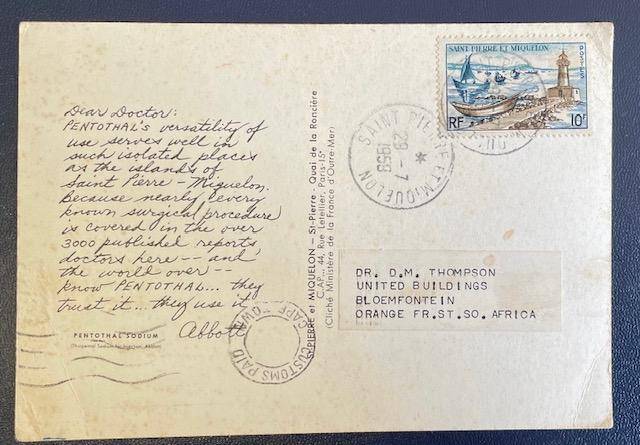 Dear Doctor:
PENTOTHAL'S versatility of
use serves well in
such isolated places
as the islands of
Saint Pierre - Miquelon.
Because nearly every
known surgical procedure
is covered in the over
3000 published reports
doctors here -- and
the world over --
know PENTOTHAL... they
trust it... they use it
Abbott
PENTOTHAL SODIUM
(Thiopental Sodium for Injection, Abbott)
ST-PIERRE et MIQUELON - St-Pierre - Quai de la Roncière
C.A.P... 44, Rue Letellier, Paris-15e
(Cliché Ministère de la France d'Outre-Mer)
SAINT PIERRE ET MIQUELON
POSTES
RF
10F
SAINT PIERRE ET MIQUELON
29 -7
1958
CAPE TOWN
CUSTOMS PAID
DR. D.M. THOMPSON
UNITED BUILDINGS
BLOEMFONTEIN
ORANGE FR.ST.SO.AFRICA